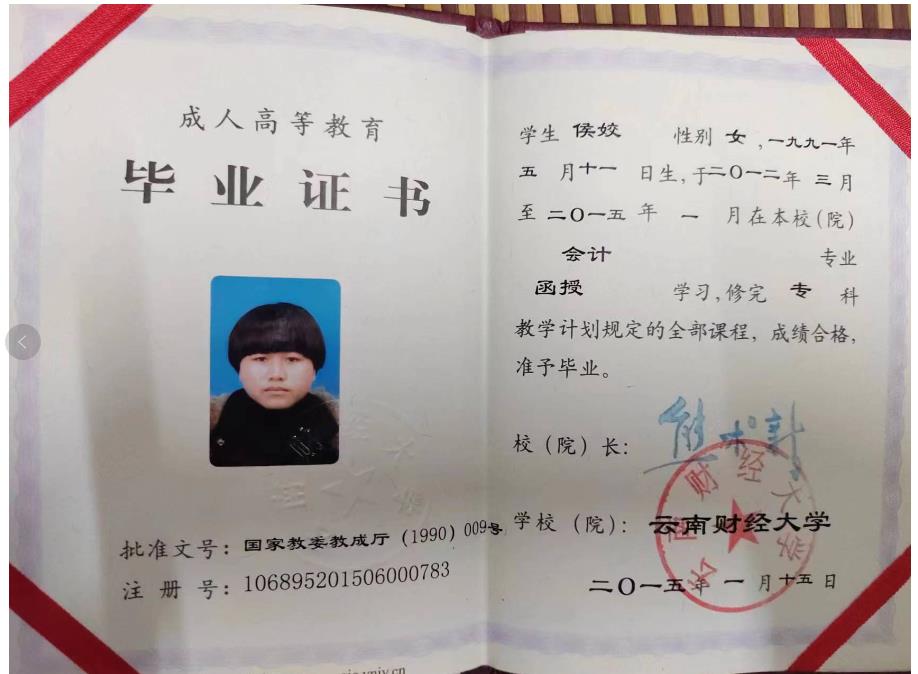 成人高等教育
毕业证书
批准文号：国家教委教成厅（1990）009号
注册号：106895201506000783
学生 侯姣 性别 女，一九九一年
五月十一日生，于二〇一二年三月
至二〇一五年一月在本校（院）
会计 专业
函授 学习，修完 专 科
教学计划规定的全部课程，成绩合格，
准予毕业。
校（院）长：
学校（院）：云南财经大学
二〇一五年一月十五日
云南财经大学